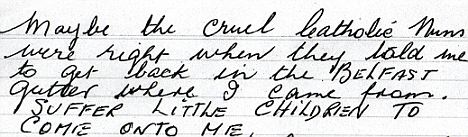 Maybe the cruel Catholic Nuns
were right when they told me
to get back in the BELFAST
gutter where I came from.
SUFFER LITTLE CHILDREN TO
COME ONTO ME